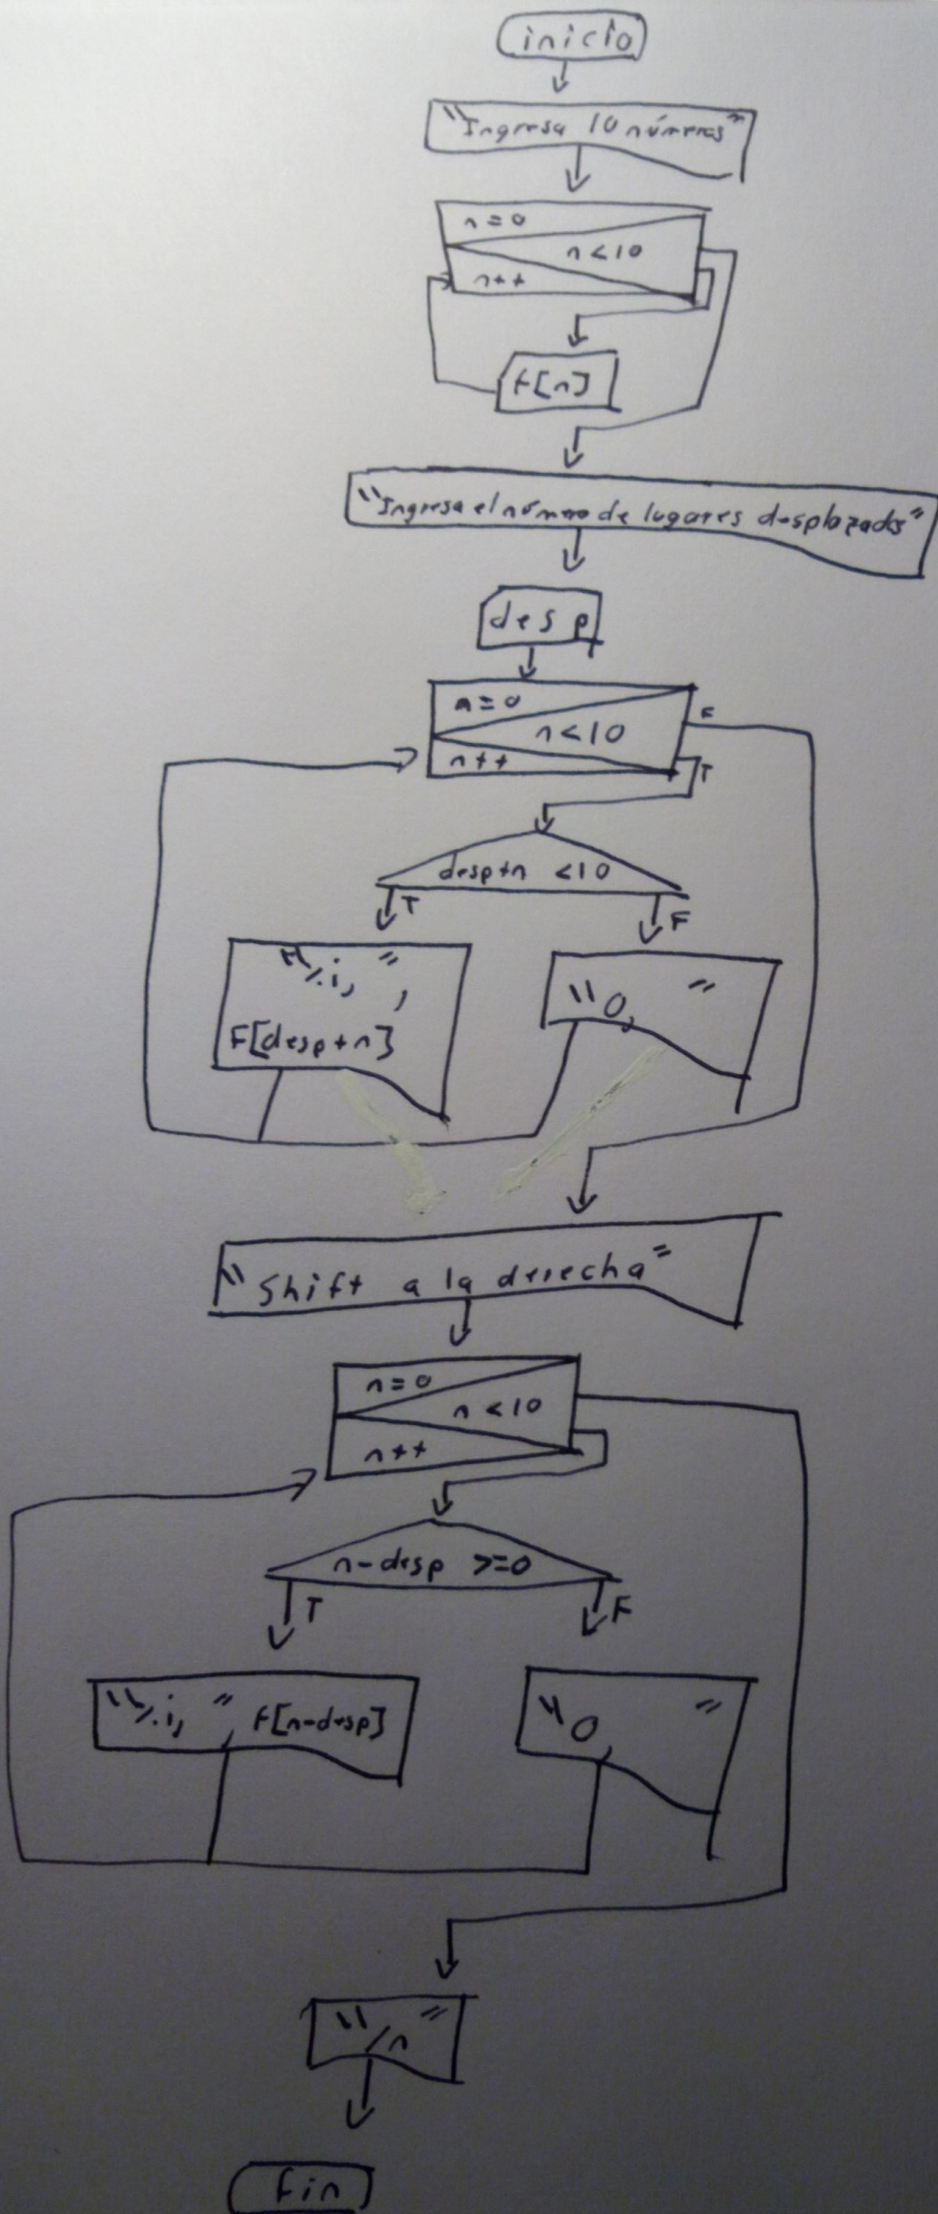 inicio
"Ingresa 10 números"
n=0
n<10
n++
f[n]
"Ingresa el número de lugares desplazados"
desp
n=0
n<10
n++
F
T
desp+n <10
T
F
"%i, ",
F[desp+n]
"0, "
"Shift a la derecha"
n=0
n<10
n++
n-desp >=0
T
F
"%i, ", f[n-desp]
"0, "
"/n"
fin